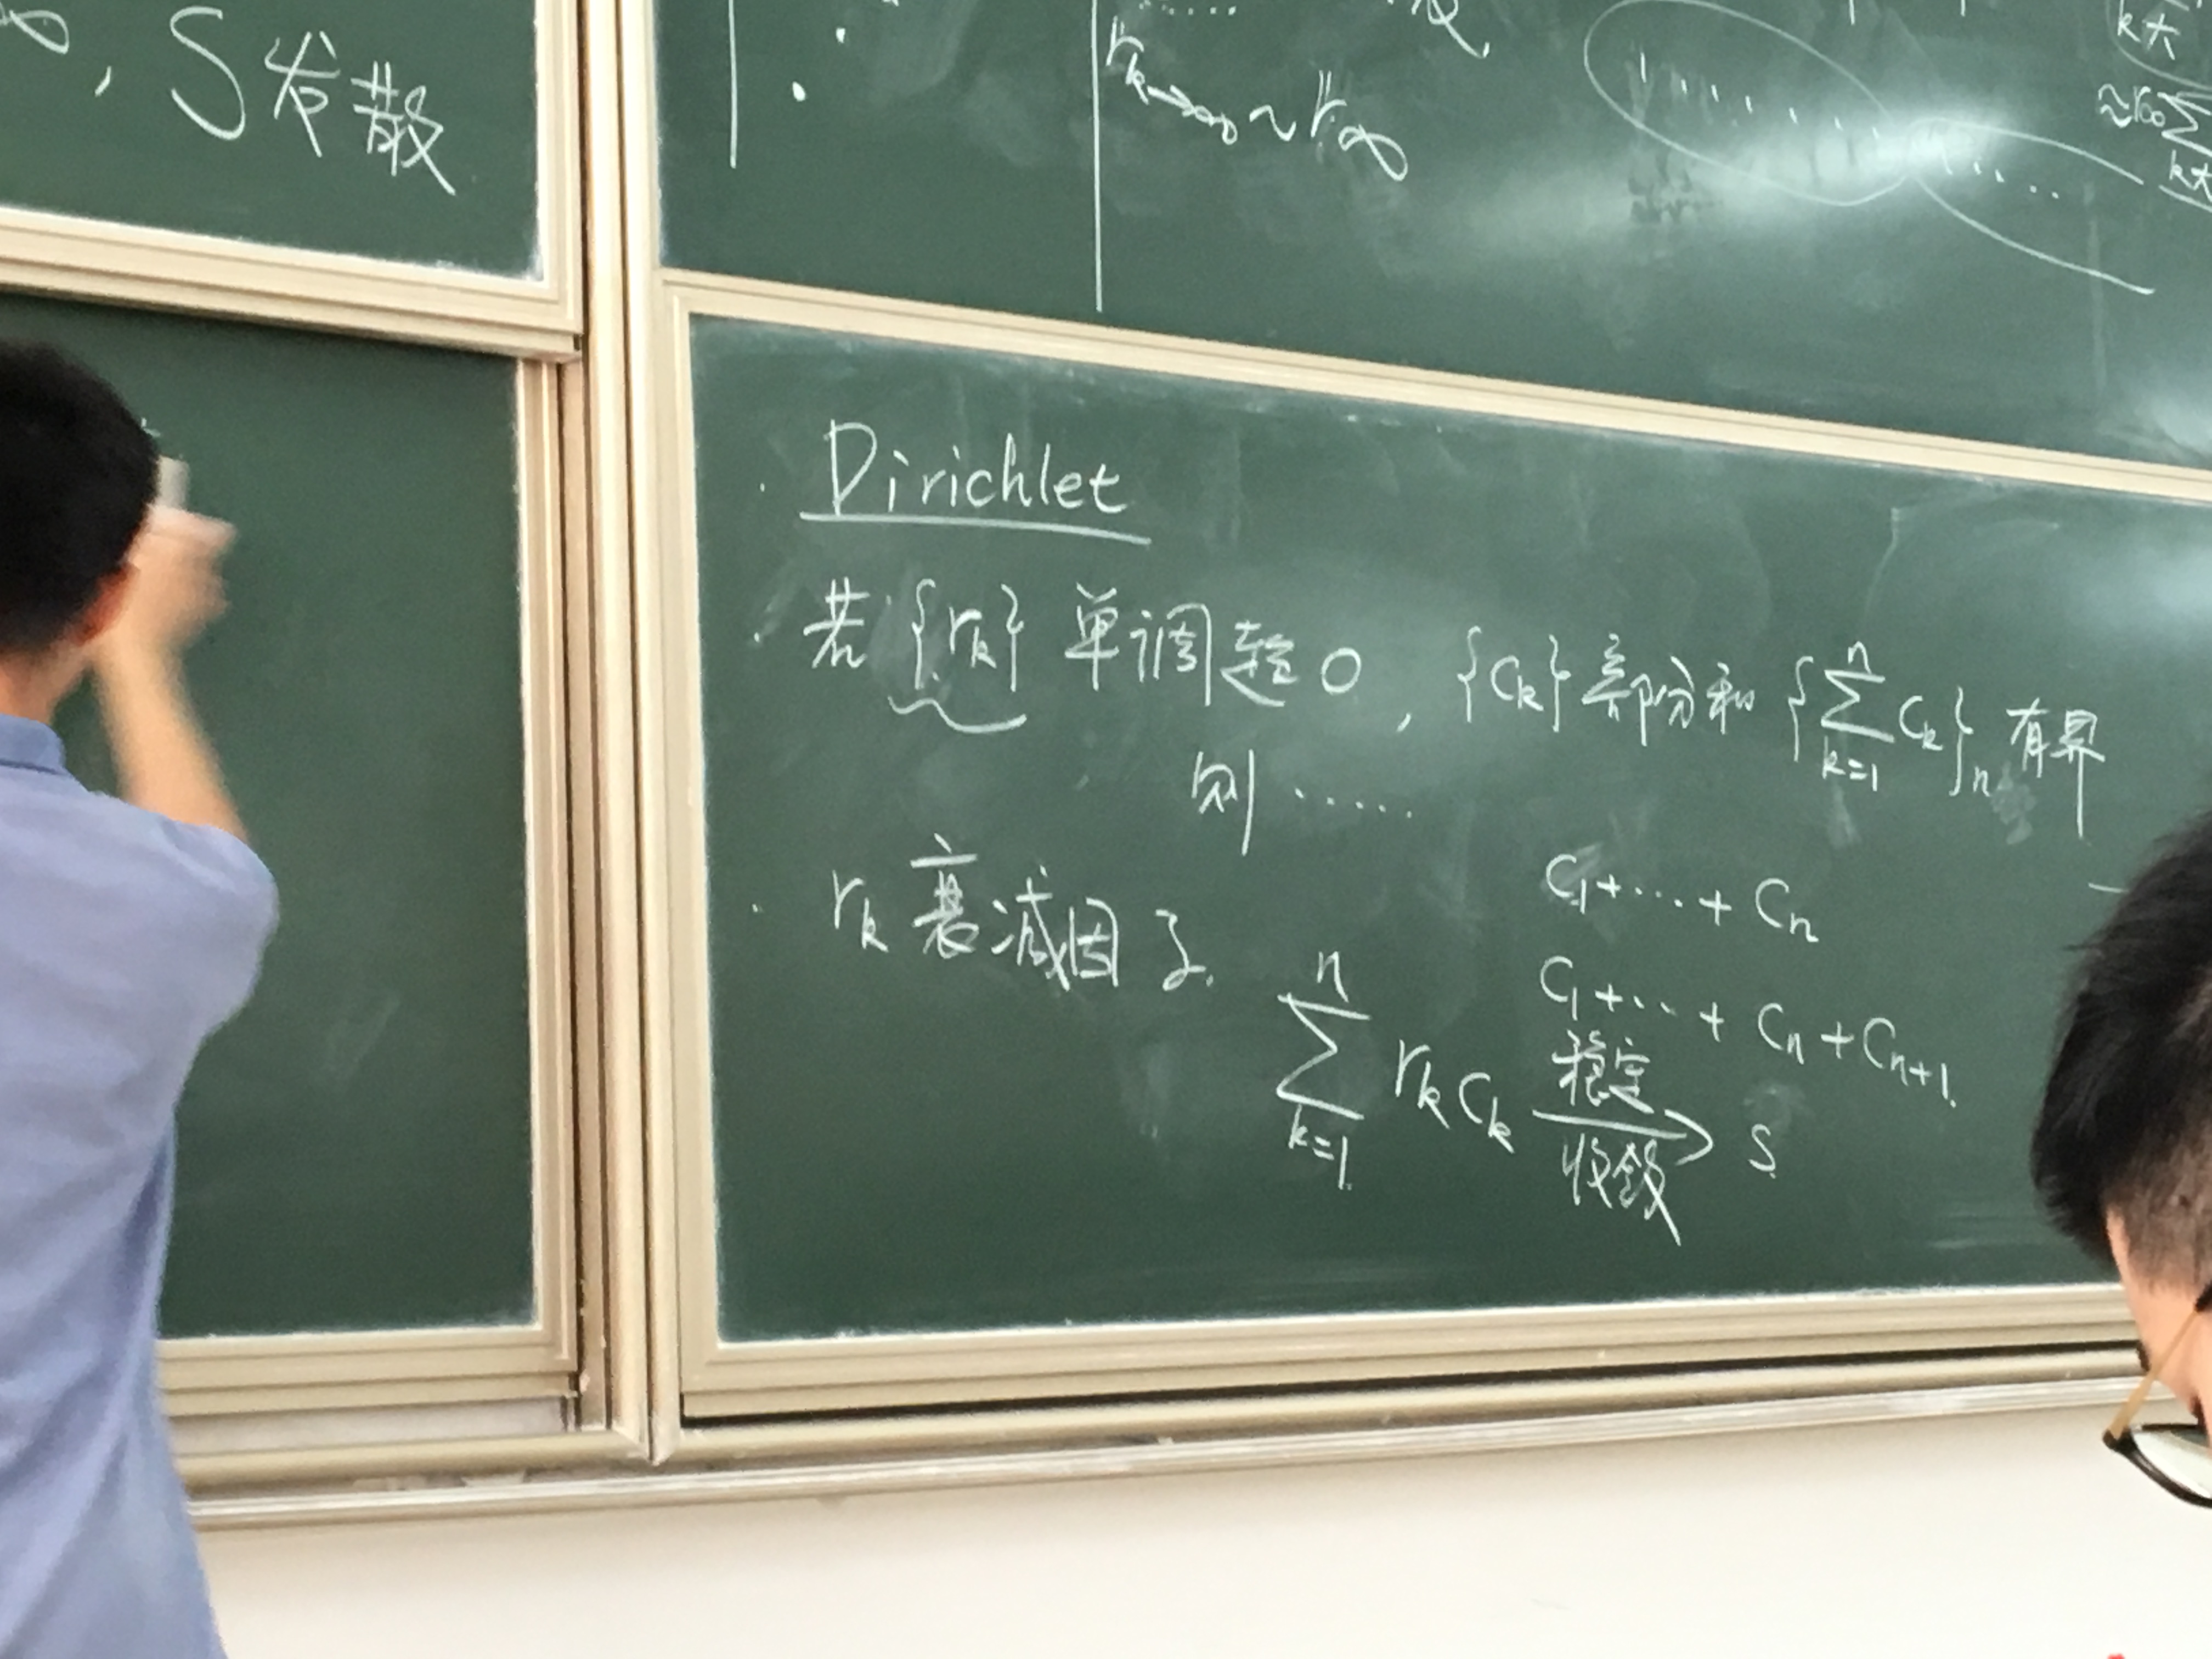 ∞, S发散
r_{k→∞} ~ r_∞
k大
≈r_∞∑
k大
Dirichlet
若{r_k}单调趋0, {C_k}部份和{∑_{k=1}^{n} C_k}_n有界
则……
r_k衰减因子.
C_1+⋯+C_n
C_1+⋯+C_n+C_{n+1}.
∑_{k=1}^{n} r_k C_k 稳定 收敛 → S